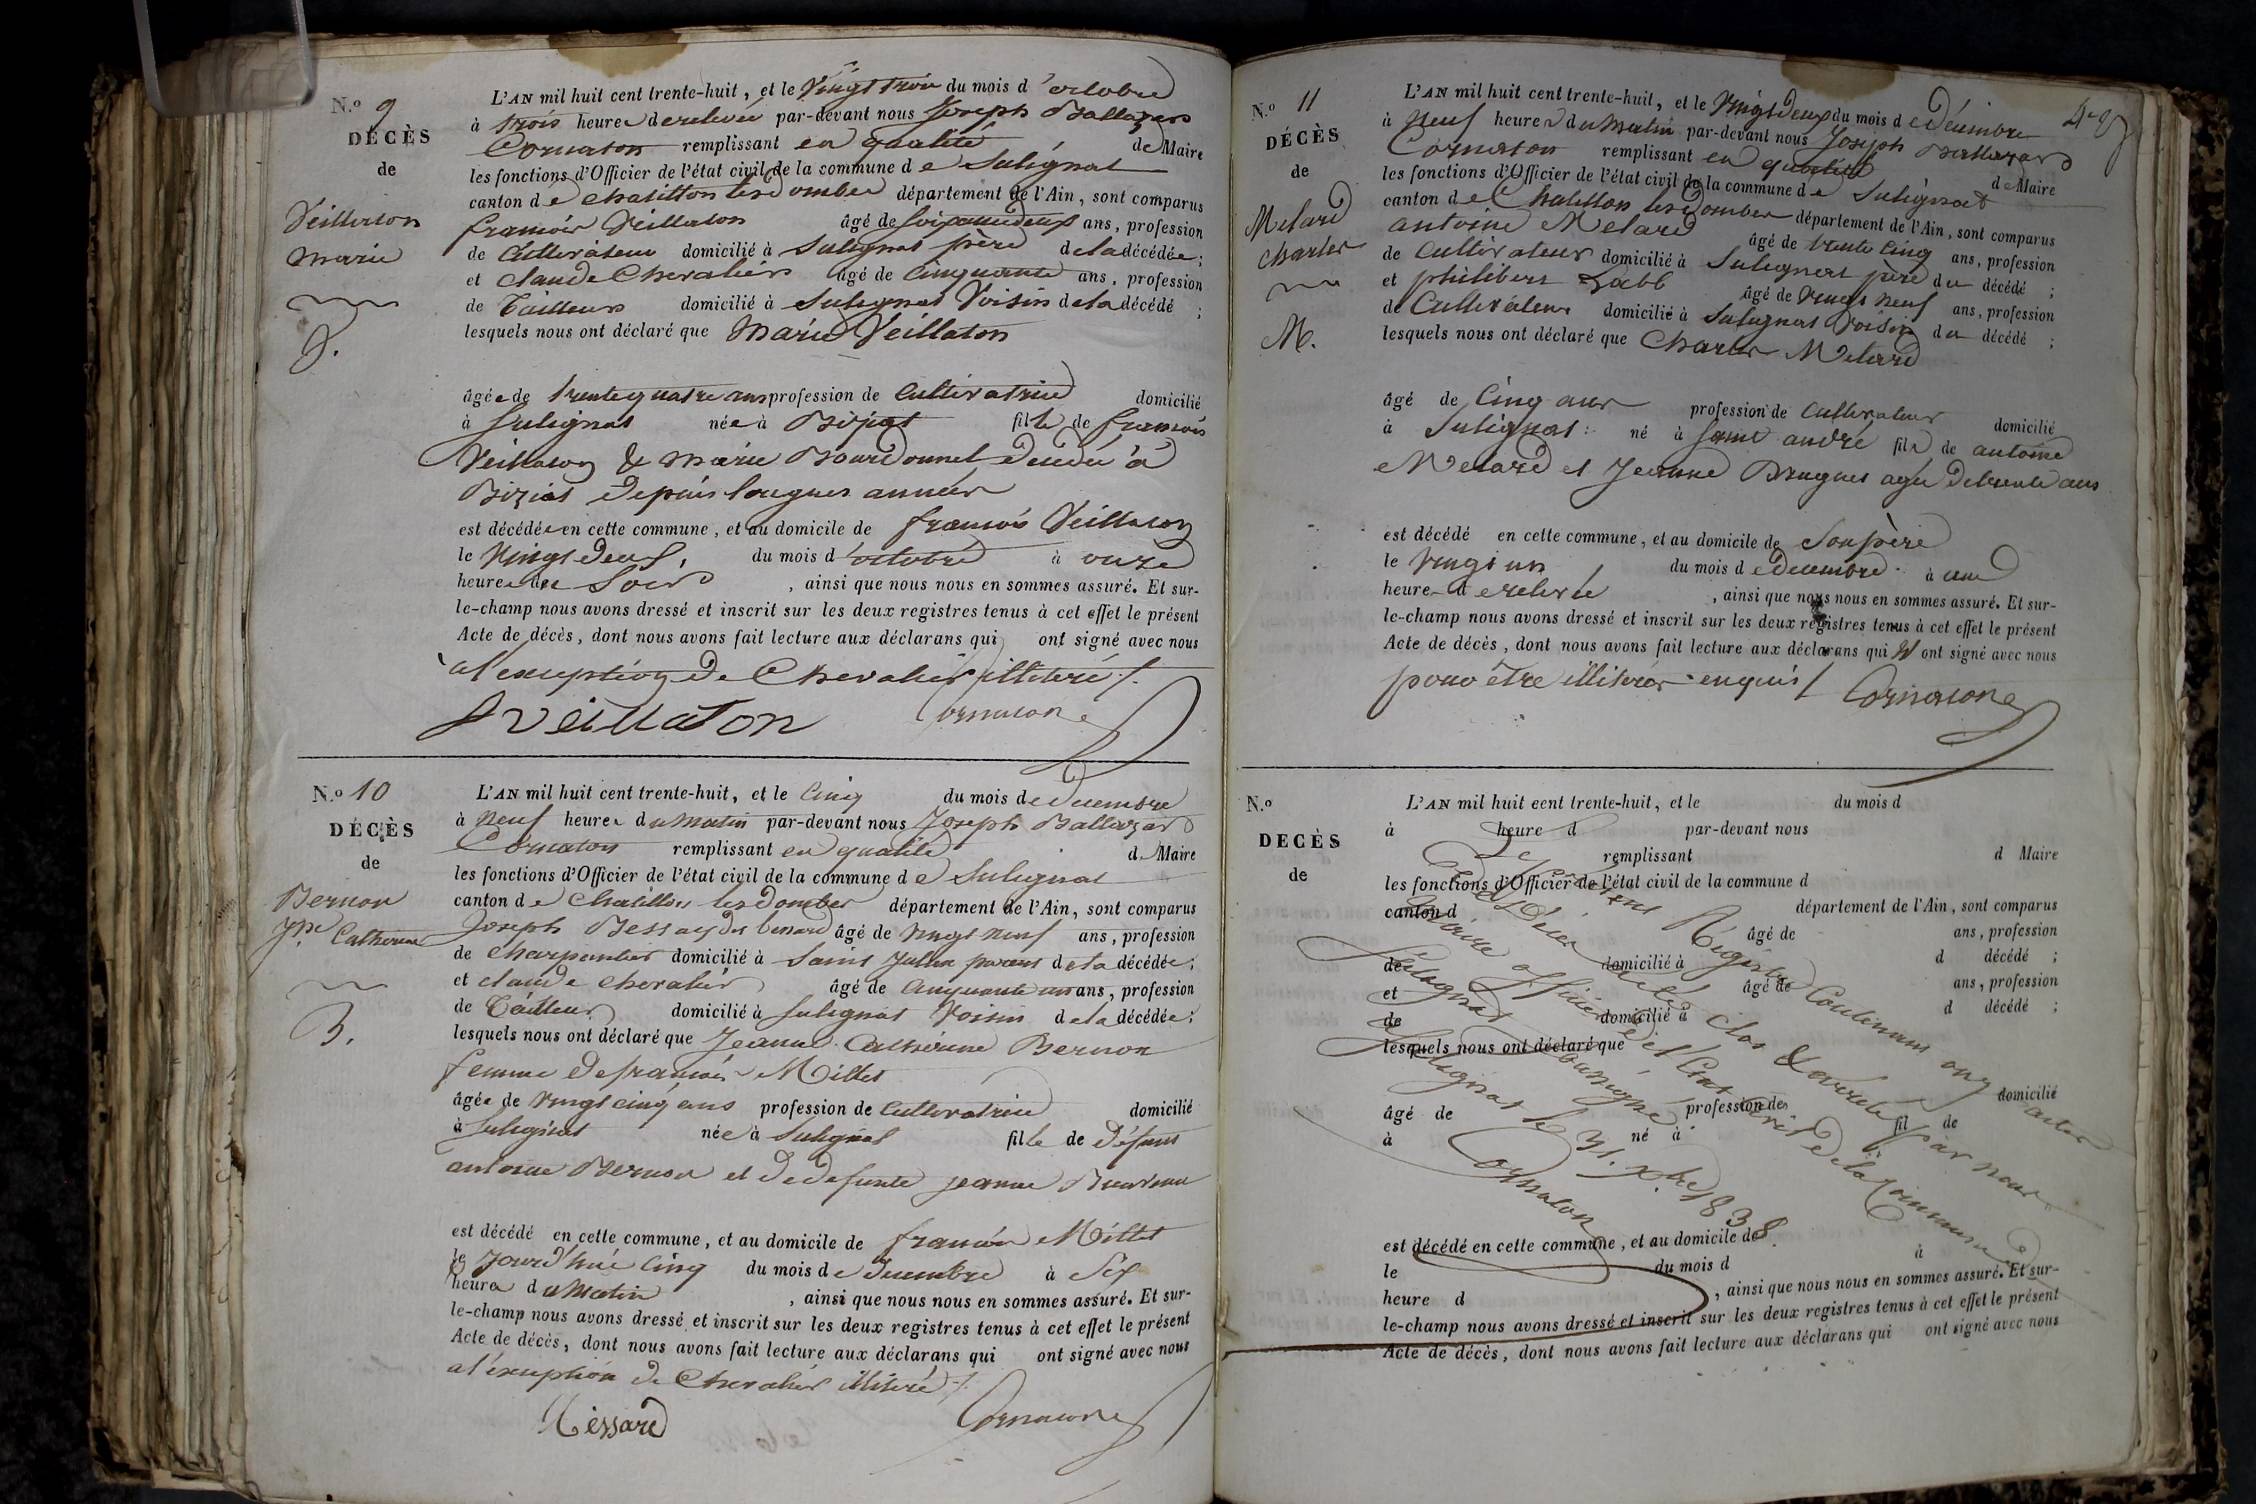 N.o 9
DÉCÈS
de
Veillaton
marie
L'AN mil huit cent trente-huit, et le vingt trois du mois d'octobre
à trois heures de relevée par-devant nous Joseph Baltazard
Cornaton remplissant en qualité de Maire
les fonctions d'Officier de l'état civil de la commune de Sulignat
canton de chatillon les dombes département de l'Ain, sont comparus
françois Veillaton âgé de soixante deux ans, profession
de Cultivateur domicilié à Sulignat père de la décédée;
et claude Chevalier âgé de cinquante ans, profession
de Tailleur domicilié à Sulignat Voisin de la décédé ;
lesquels nous ont déclaré que Marie Veillaton
âgée de trente quatre ans profession de Cultivatrice domicilié
à Sulignat née à Biziat fille de françois
Veillaton & marie Bourdonnel décédée à
Biziat depuis longues années
est décédée en cette commune, et au domicile de françois Veillaton
le Vingt deux, du mois d'octobre à onze
heures du Soir, ainsi que nous nous en sommes assuré. Et sur-
le-champ nous avons dressé et inscrit sur les deux registres tenus à cet effet le présent
Acte de décès, dont nous avons fait lecture aux déclarans qui ont signé avec nous
à l'exception de Chevalier illiteré /.
Veillaton Cornaton
N.o 10
DÉCÈS
de
Bernon
Catherine
B.
L'AN mil huit cent trente-huit, et le Cinq du mois de decembre
à neuf heures du Matin par-devant nous Joseph Baltazard
Cornaton remplissant en qualité de Maire
les fonctions d'Officier de l'état civil de la commune de Sulignat
canton de Chatillon les dombes département de l'Ain, sont comparus
Joseph Bessard âgé de vingt neuf ans, profession
de Charpentier domicilié à Saint Julien parent de la décédée;
et claude chevalier âgé de cinquante ans, profession
de Tailleur domicilié à Sulignat Voisin de la décédée;
lesquels nous ont déclaré que Jeanne Catherine Bernon
femme de françois Millet
âgée de vingt cinq ans profession de Cultivatrice domicilié
à Sulignat née à Sulignat fille de défunt
antoine Bernon et de defunte jeanne
est décédé en cette commune, et au domicile de françois Millet
le jourd'hui Cinq du mois de decembre à Six
heures du Matin, ainsi que nous nous en sommes assuré. Et sur-
le-champ nous avons dressé et inscrit sur les deux registres tenus à cet effet le présent
Acte de décès, dont nous avons fait lecture aux déclarans qui ont signé avec nous
à l'exception de Chevalier illiteré /.
Bessard Cornaton
N.o 11
DÉCÈS
de
Melard
charles
M.
L'AN mil huit cent trente-huit, et le Vingt deux du mois de décembre
à neuf heures du Matin par-devant nous Joseph Baltazard
Cornaton remplissant en qualité de Maire
les fonctions d'Officier de l'état civil de la commune de Sulignat
canton de Chatillon les Dombes département de l'Ain, sont comparus
antoine Melard âgé de trente cinq ans, profession
de Cultivateur domicilié à Sulignat père du décédé ;
et philibert Rabb âgé de vingt neuf ans, profession
de Cultivateur domicilié à Sulignat Voisin du décédé ;
lesquels nous ont déclaré que Charles Melard
âgé de Cinq ans profession de Cultivateur domicilié
à Sulignat né à Saint andré fils de antoine
Melard et Jeanne Brugnes agée de trente ans
est décédé en cette commune, et au domicile de Son père
le vingt un du mois de decembre à une
heure de relevée, ainsi que nous nous en sommes assuré. Et sur-
le-champ nous avons dressé et inscrit sur les deux registres tenus à cet effet le présent
Acte de décès, dont nous avons fait lecture aux déclarans qui N'ont signé avec nous
pour être illiterés enquis / Cornaton
N.o
DECÈS
de
L'AN mil huit cent trente-huit, et le du mois d
à heure d par-devant nous
remplissant d Maire
les fonctions d'Officier de l'état civil de la commune d
canton d département de l'Ain, sont comparus
âgé de ans, profession
de domicilié à d décédé ;
et âgé de ans, profession
de domicilié à d décédé ;
lesquels nous ont déclaré que
âgé de profession de domicilié
à né à fil de
est décédé en cette commune, et au domicile de
le du mois d à
heure d , ainsi que nous nous en sommes assuré. Et sur-
le-champ nous avons dressé et inscrit sur les deux registres tenus à cet effet le présent
Acte de décès, dont nous avons fait lecture aux déclarans qui ont signé avec nous
Le présent Régistre Contenant onz actes
de Décès a été clos & arreté par nous
Maire officier de l'Etat Civil de la Commune de
Sulignat soussigné
à Sulignat le 31. xbre 1838.
Cornaton